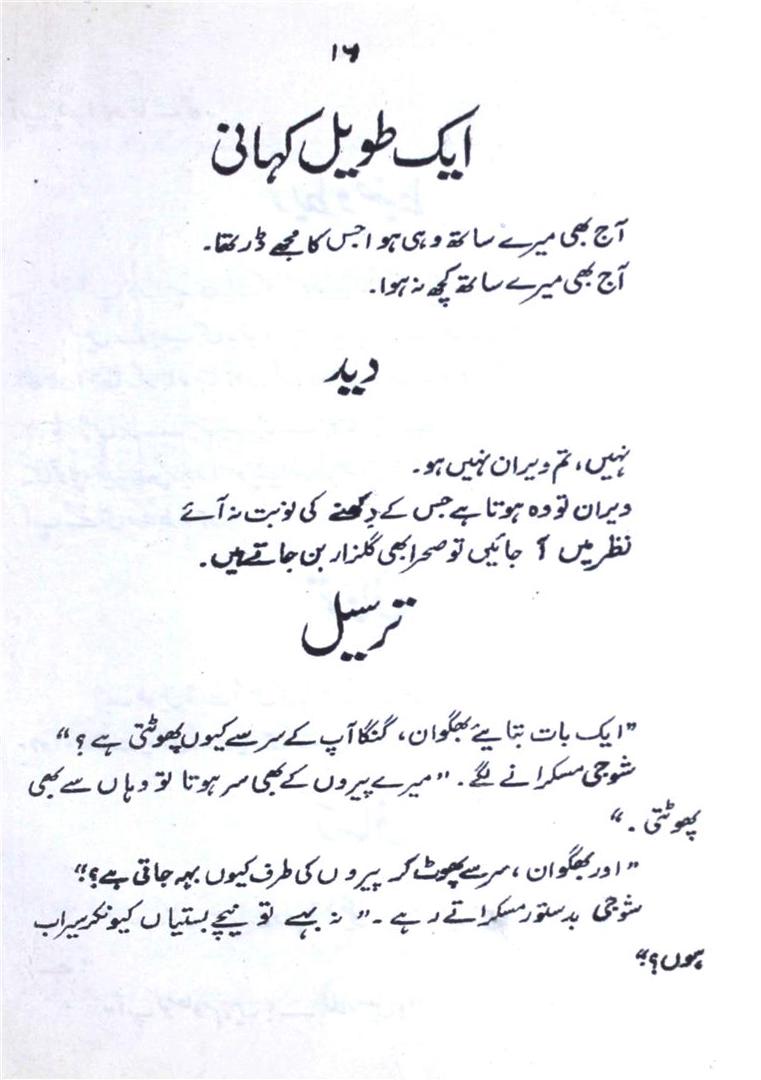 ۱۶
ایک طویل کہانی
آج بھی میرے ساتھ وہی ہوا جس کا مجھے ڈر تھا۔
آج بھی میرے ساتھ کچھ نہ ہوا۔
دید
نہیں، تم ویران نہیں ہو۔
ویران تو وہ ہوتا ہے جس کے دِکھنے کی نوبت نہ آئے
نظر میں آ جائیں تو صحرا بھی گلزار بن جاتے ہیں۔
ترسیل
"ایک بات بتایئے بھگوان، گنگا آپ کے سر سے کیوں پھوٹتی ہے؟"
شوجی مسکرانے لگے۔ "میرے پیروں کے بھی سر ہوتا تو وہاں سے بھی
پھوٹتی۔"
"اور بھگوان، سر سے پھوٹ کر پیروں کی طرف کیوں بہہ جاتی ہے؟"
شوجی بدستور مسکراتے رہے۔ "نہ بہے تو نیچے بستیاں کیونکر سیراب
ہوں؟"